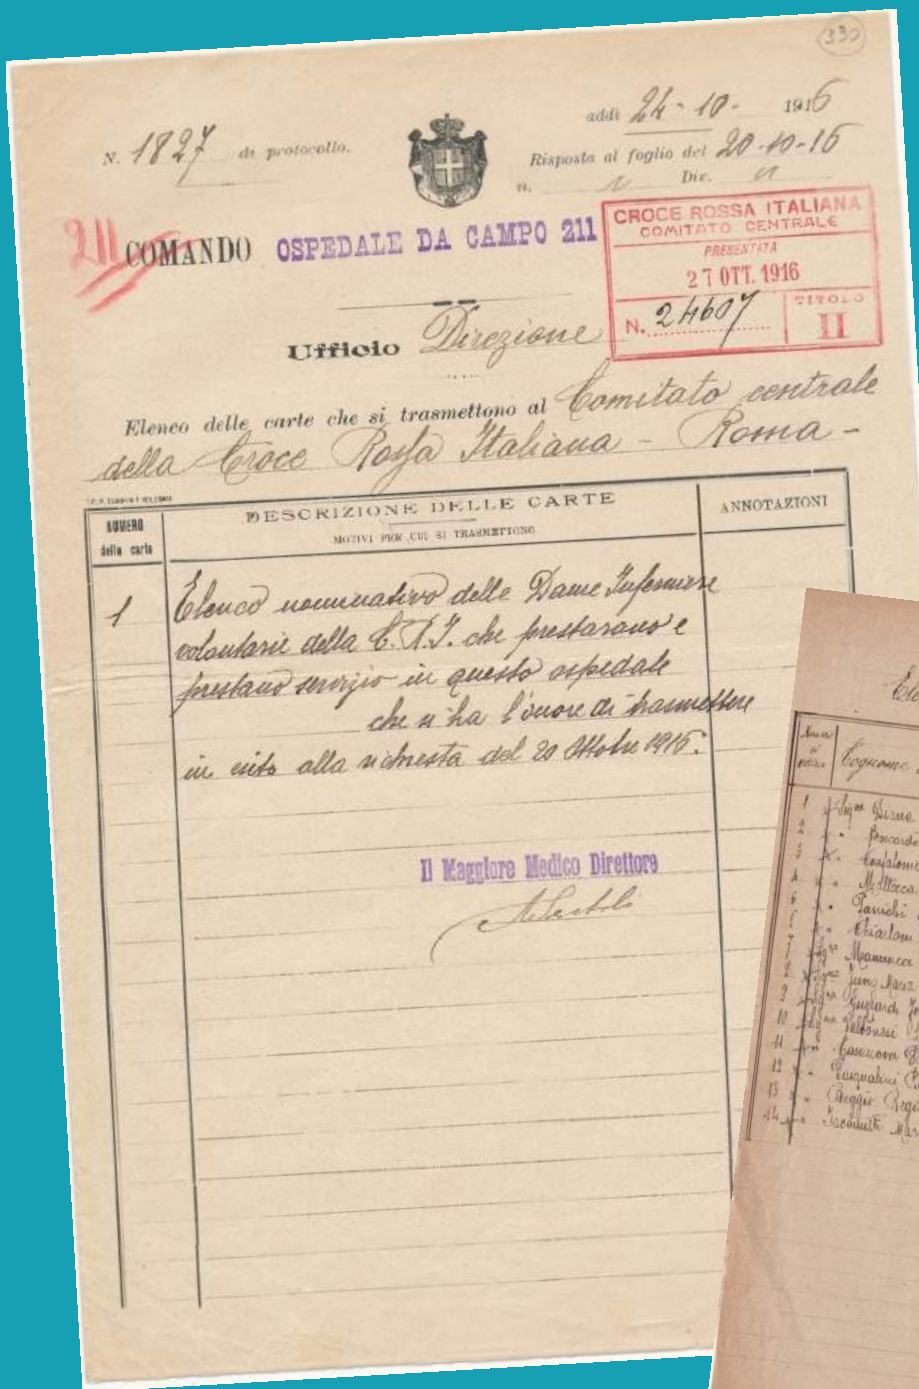 330
addì 24-10- 1916
N. 1827 di protocollo.
Risposta al foglio del 20-10-16
n. Div.
211 COMANDO OSPEDALE DA CAMPO 211
CROCE ROSSA ITALIANA
COMITATO CENTRALE
PRESENTATA
27 OTT. 1916
N. 24607
TITOLO
II
Ufficio Direzione
Elenco delle carte che si trasmettono al Comitato centrale
della Croce Rossa Italiana - Roma -
NUMERO
delle carte
DESCRIZIONE DELLE CARTE
MOTIVI PER CUI SI TRASMETTONO
ANNOTAZIONI
1
Elenco nominativo delle Dame Infermiere
volontarie della C.R.I. che prestarono e
prestano servizio in questo ospedale
che si ha l'onore di trasmettere
in esito alla richiesta del 20 Ottobre 1916.
Il Maggiore Medico Direttore
Numero
di
ordine
Cognome
1
2
3
4 Millocca
5
6
7 Mannucci
8
9
10
11 Casanova
12 Pasqualini
13
14